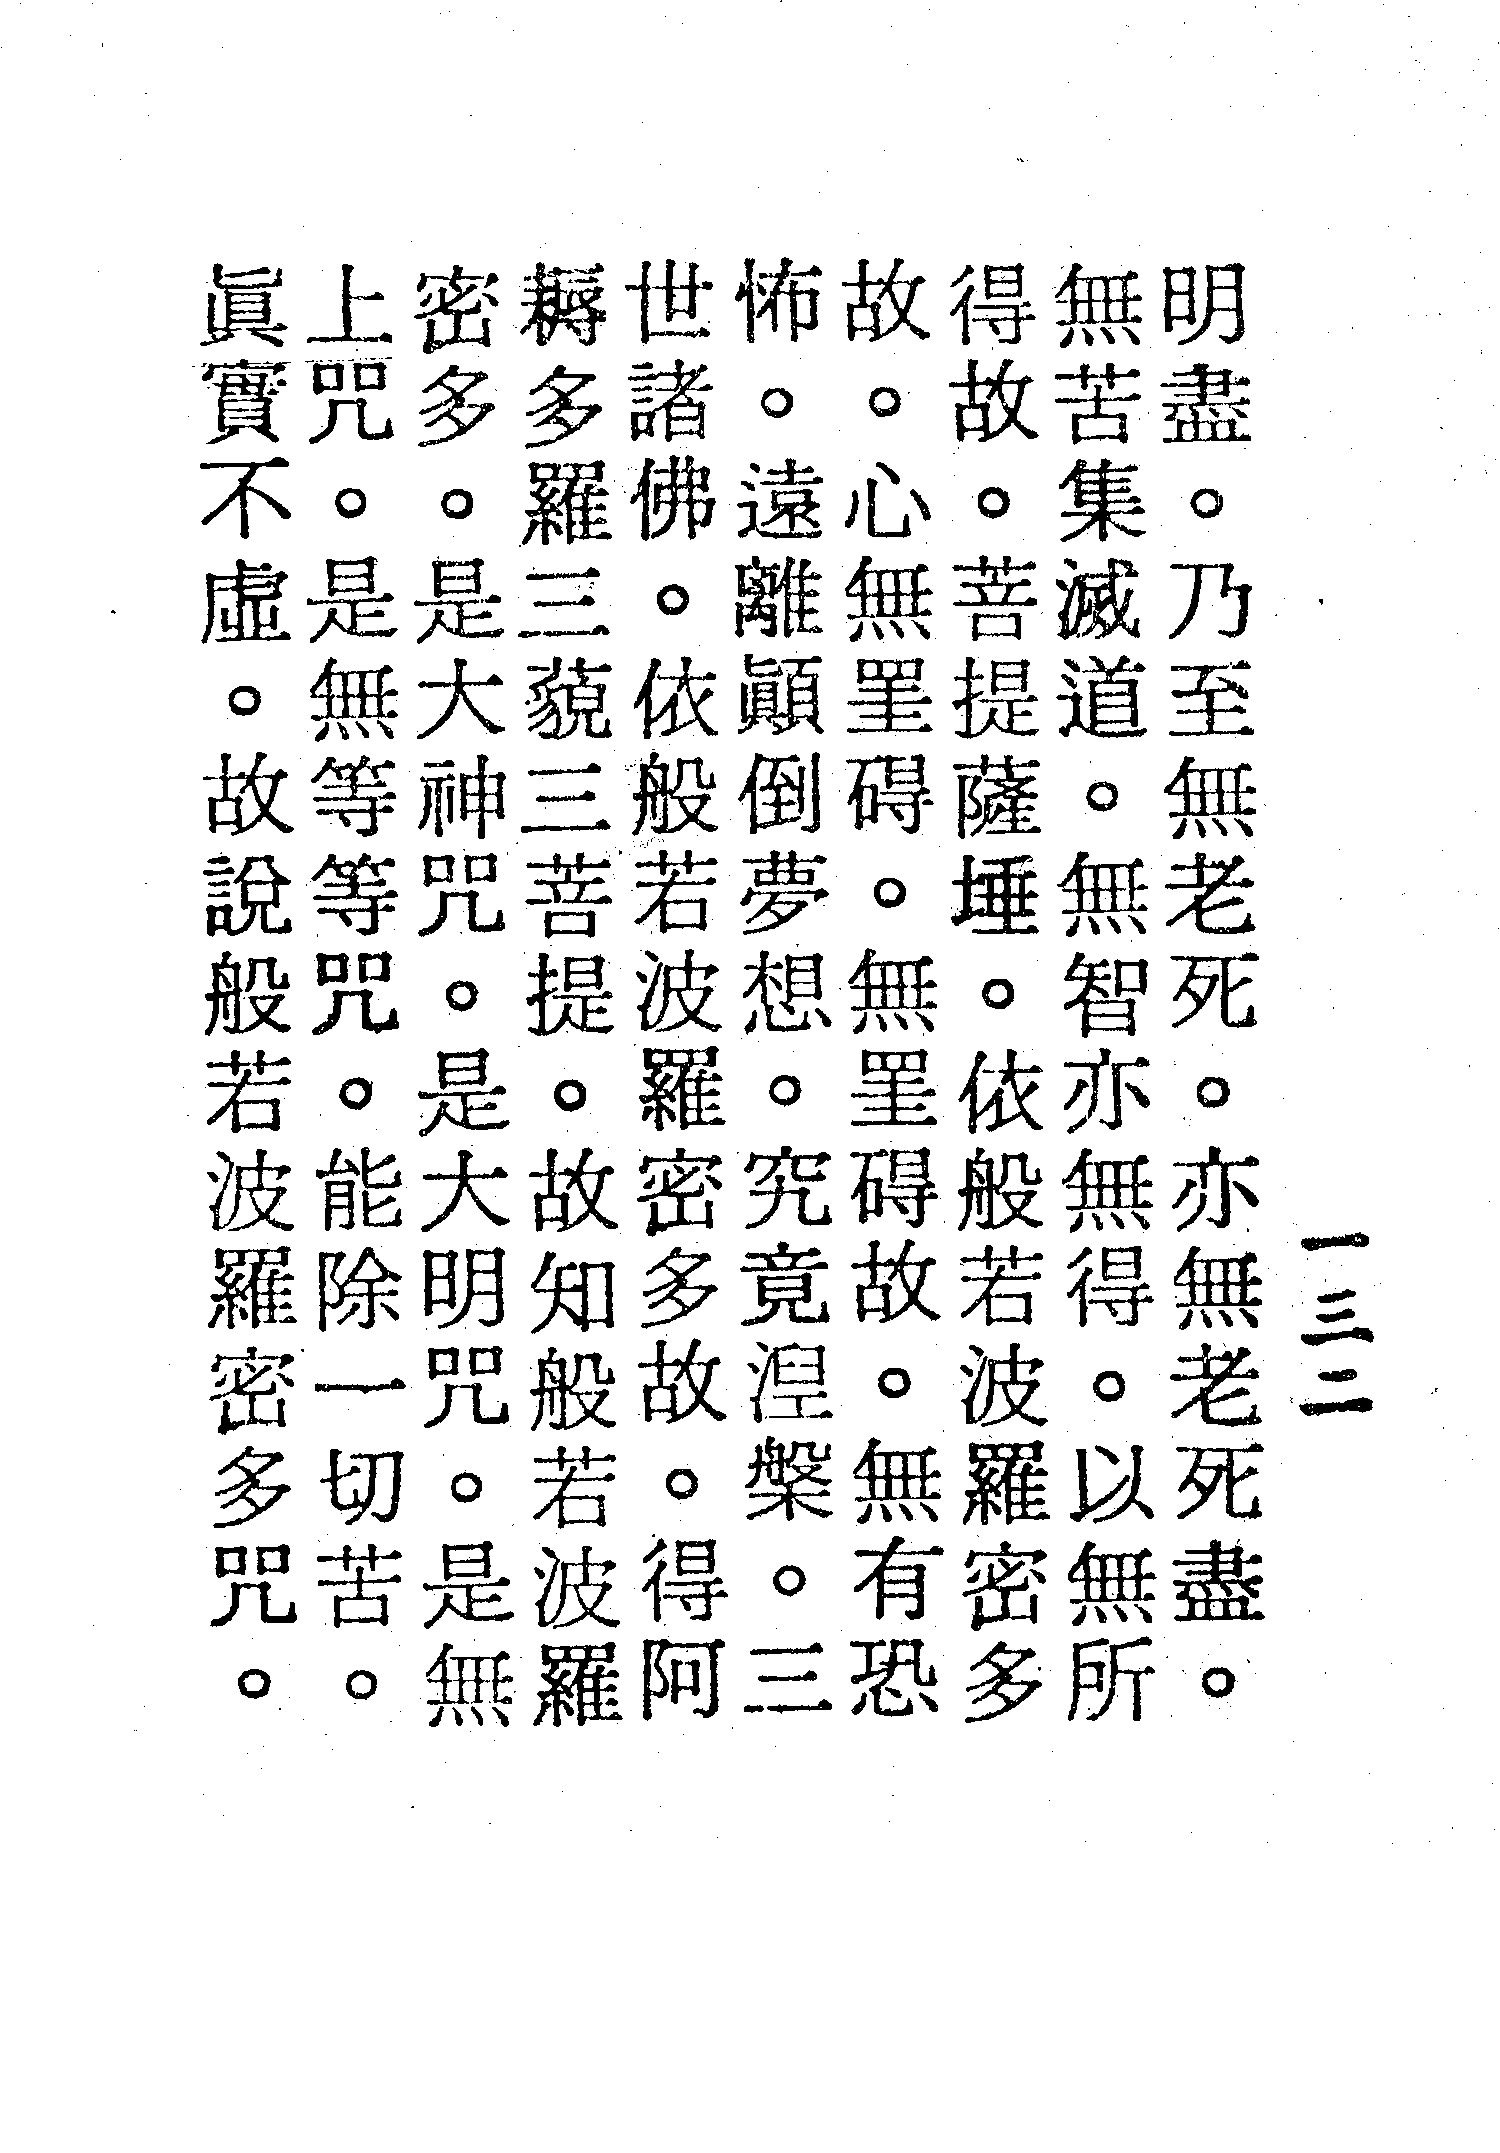 明盡。乃至無老死。亦無老死盡。
無苦集滅道。無智亦無得。以無所
得故。菩提薩埵。依般若波羅密多
故。心無罣碍。無罣碍故。無有恐
怖。遠離顚倒夢想。究竟涅槃。三
世諸佛。依般若波羅密多故。得阿
耨多羅三藐三菩提。故知般若波羅
密多。是大神咒。是大明咒。是無
上咒。是無等等咒。能除一切苦。
眞實不虛。故說般若波羅密多咒。
一三二